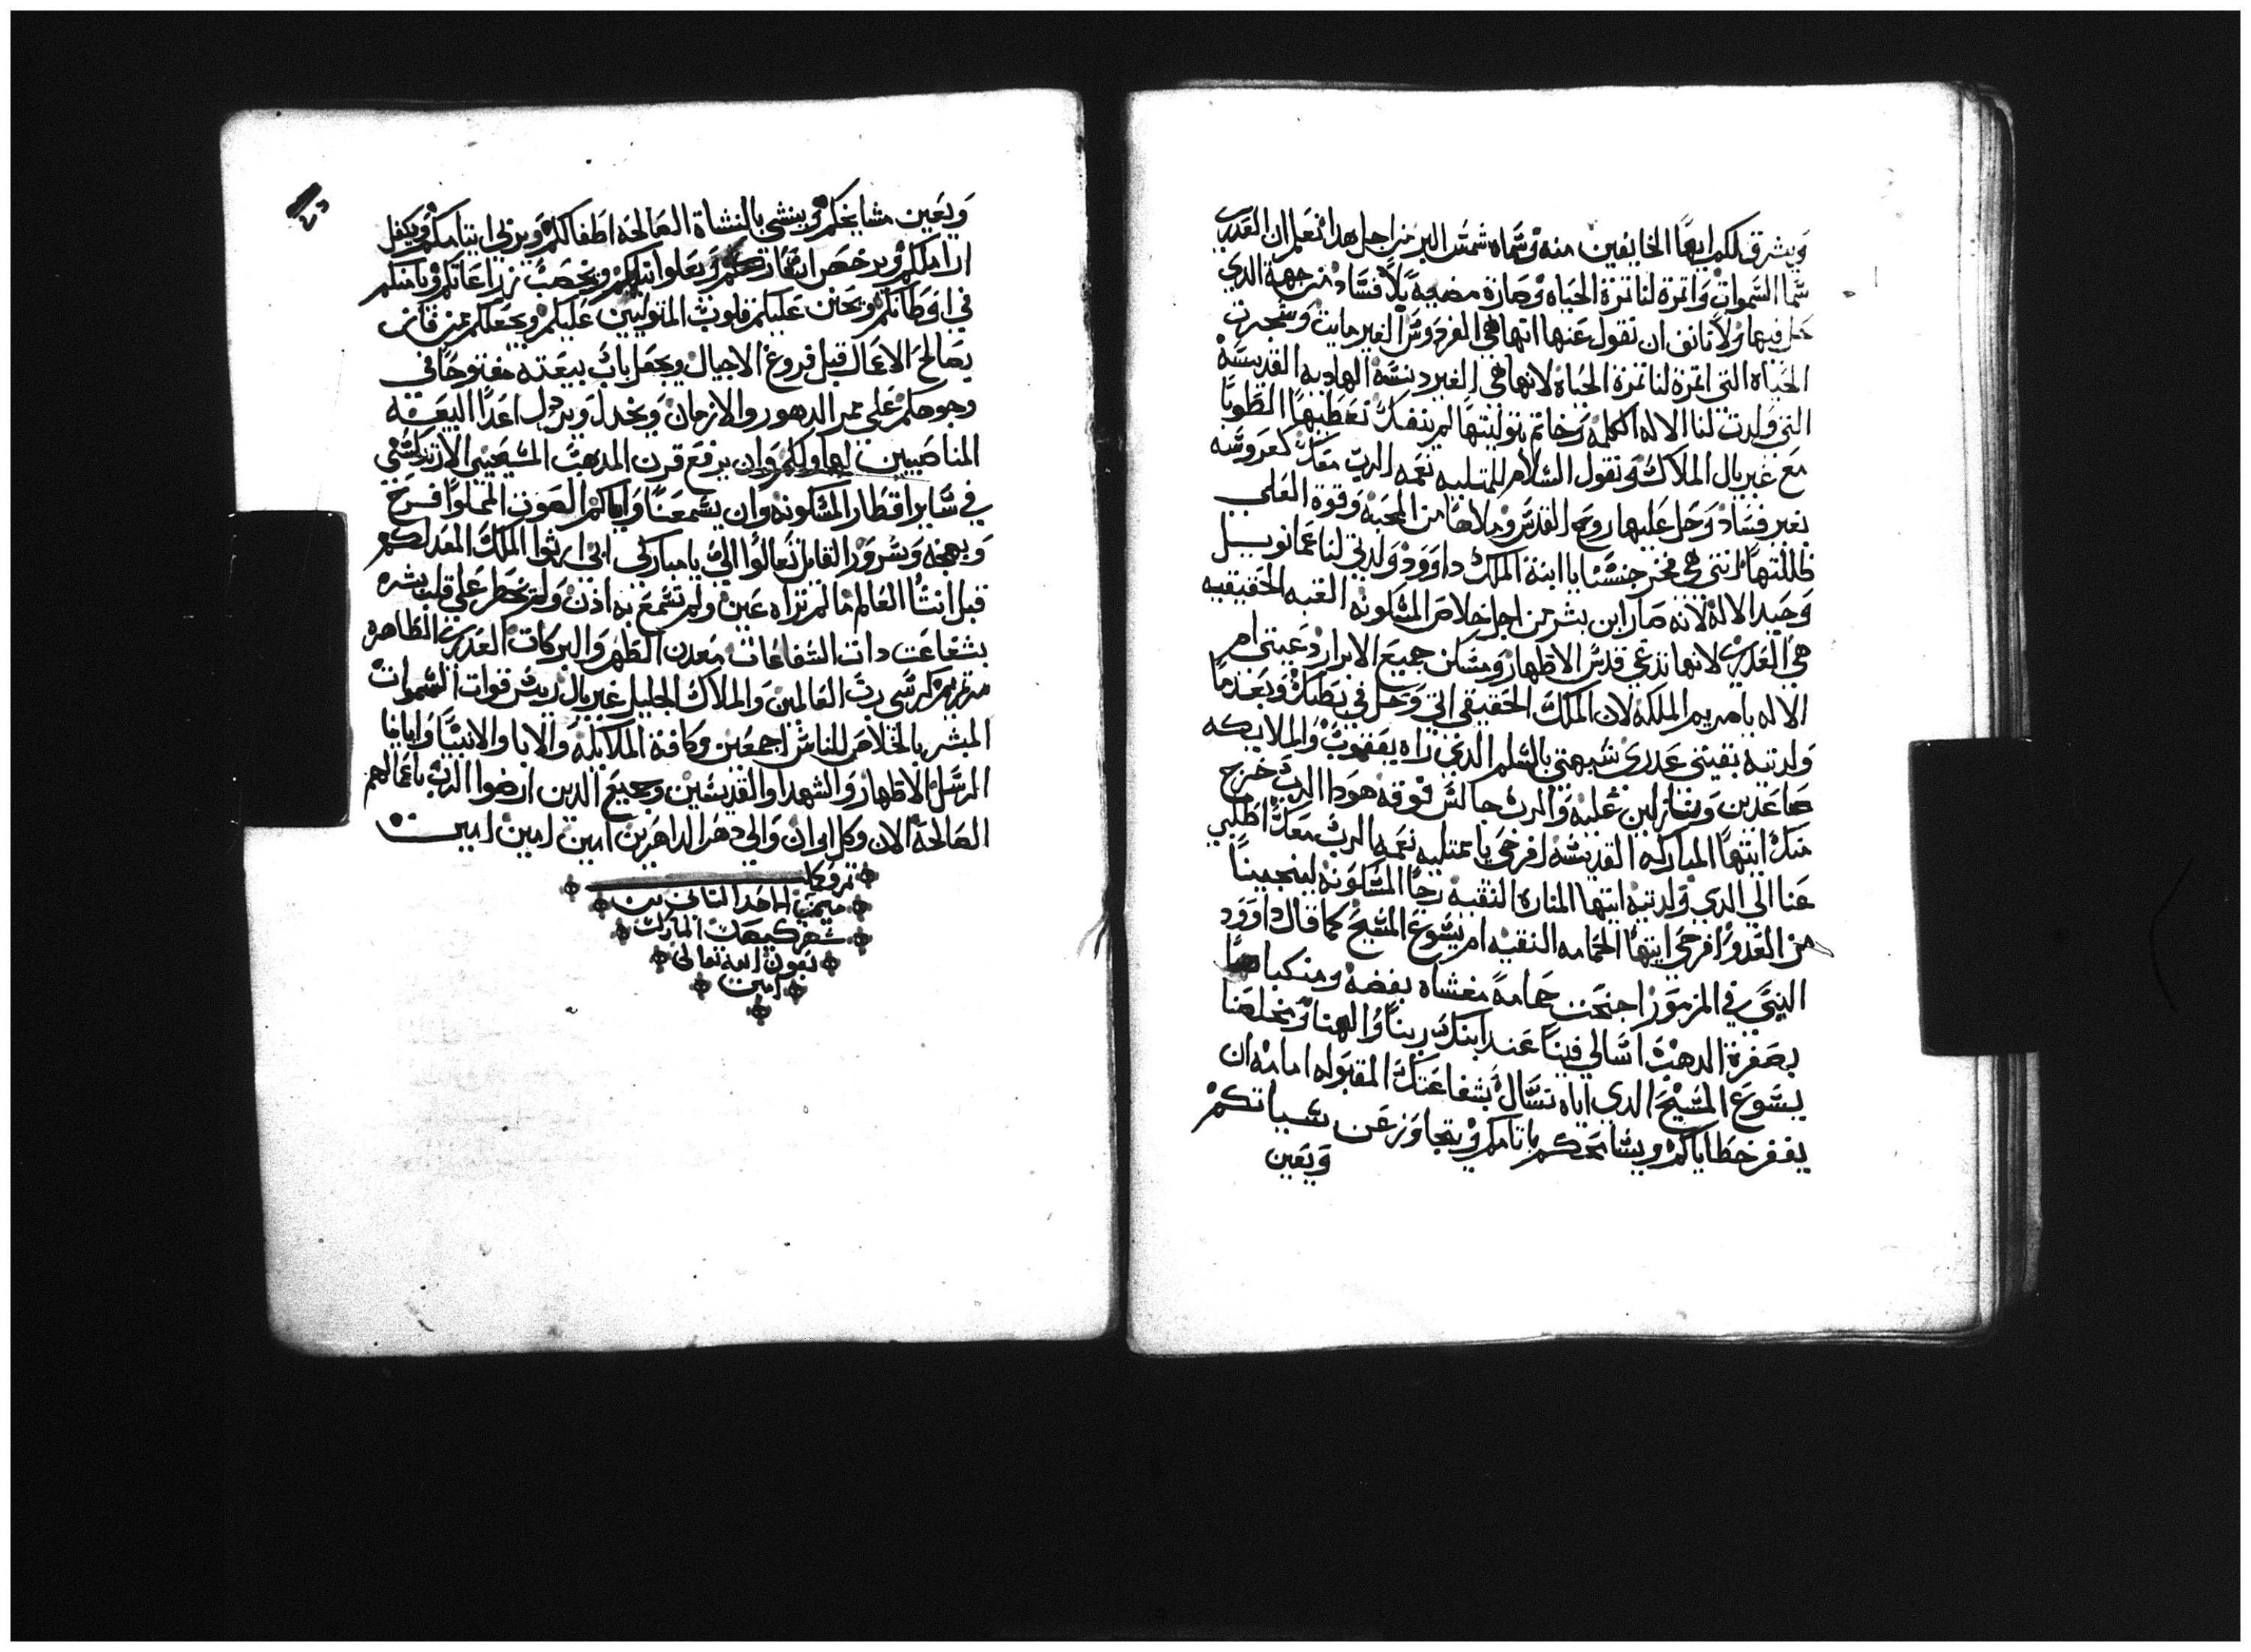 ويشرق لكم ايها الخايفين منه وسماه شمس البر من اجل هدا نعلم ان العدري
سما السموات واتمرة لنا تمرة الحياه وصارة مضيه بلا فساد من جهة الدي
حل فيها ولا نانف ان نقول عنها انها هي الفردوس الغير مايت وشجرت
الحياه التي اتمرة لنا تمرة الحياة لانها هي الهاديه القديسه
التي ولدت لنا الاله الكلمه وخاتم بتوليتها لم ينفك نعطيها الطوبا
مع غبريال الملاك ونقول السلام للممتليه نعمه الرب معك كعروسه
بغير فساد وحل عليها روح القدس وملاها من المحبه وقوة العلي
ظللتها انتي هي فخر جنسنا يا ابنة الملك داوود ولدتي لنا عمانوييل
وحيد الاله لانه صار ابن بشر من اجل خلاص المسكونه القبه الحقيقيه
هي العدري لانها تدعي قدس الاطهار ومسكن جميع الابرار دعيتي ام
الاله يا مريم الملكه لان الملك الحقيقي اتي وحل في بطنك وبعدما
ولدتيه بقيتي عدري شبهتي بالسلم الدي راه يعقوب والملايكه
صاعدين ونازلين عليه والرب جالس فوقه هودا الرب خرج
منك ايتها المباركه القديسه افرحي يا ممتليه نعمه الرب معك اطلبي
عنا الي الدي ولدتيه ايتها المناره النقيه رجا المسكونه لينجينا
من العدو افرحي ايتها الحمامه النقيه ام يسوع المسيح كما قال داوود
النبي في المزمور اجنحت حمامة مغشاه بفضه ومنكباها
بصفرة الدهب اسالي فينا عند ابنك ربنا والهنا ومخلصنا
يسوع المسيح الدي اياه نسال بشفاعتك المقبوله امامه ان
يغفر خطاياكم ويسامحكم باتامكم ويتجاوز عن سياتكم
ويعين
ويعين مشايخكم وينشي بالنشاة الصالحه اطفالكم ويربي ايتامكم ويكفل
اراملكم ويرخص اسعاركم ويخصب زراعاتكم ويامنكم
في اوطانكم ويحنن عليكم قلوب المتوليين عليكم ويجعلكم ممن فاز
بصالح الاعمال قبل فروغ الاجيال ويجعل باب بيعته مفتوحا في
وجوهكم علي ممر الدهور والازمان ويخدل اعدا البيعه
المناصبين لها ولكم وان يرفع قرن المدهب المسيحي الارتدكسي
في ساير اقطار المسكونه وان يسمعنا واياكم الصوت المملوا فرح
وبهجه وسرور القايل تعالوا الي يا مباركي ابي ارثوا الملك المعد لكم
قبل انشا العالم ما لم تراه عين ولم تسمع به ادن ولم يخطر علي قلب بشر
بشفاعت دات الشفاعات معدن الطهر والبركات العدري الطاهره
مرتمريم كرسي رب العالمين والملاك الجليل غبريال رييس قوات السموات
المبشر بالخلاص للناس اجمعين وكافة الملايكه والابا والانبيا
الرسل الاطهار والشهدا والقديسين وجميع الدين ارضوا الرب باعمالهم
الصالحة الان وكل اوان والي دهر الداهرين امين امين امين
تم وكمل
ميمر الاحد التاني من
شهر كيهك المبارك
بعون الله تعالي
امين